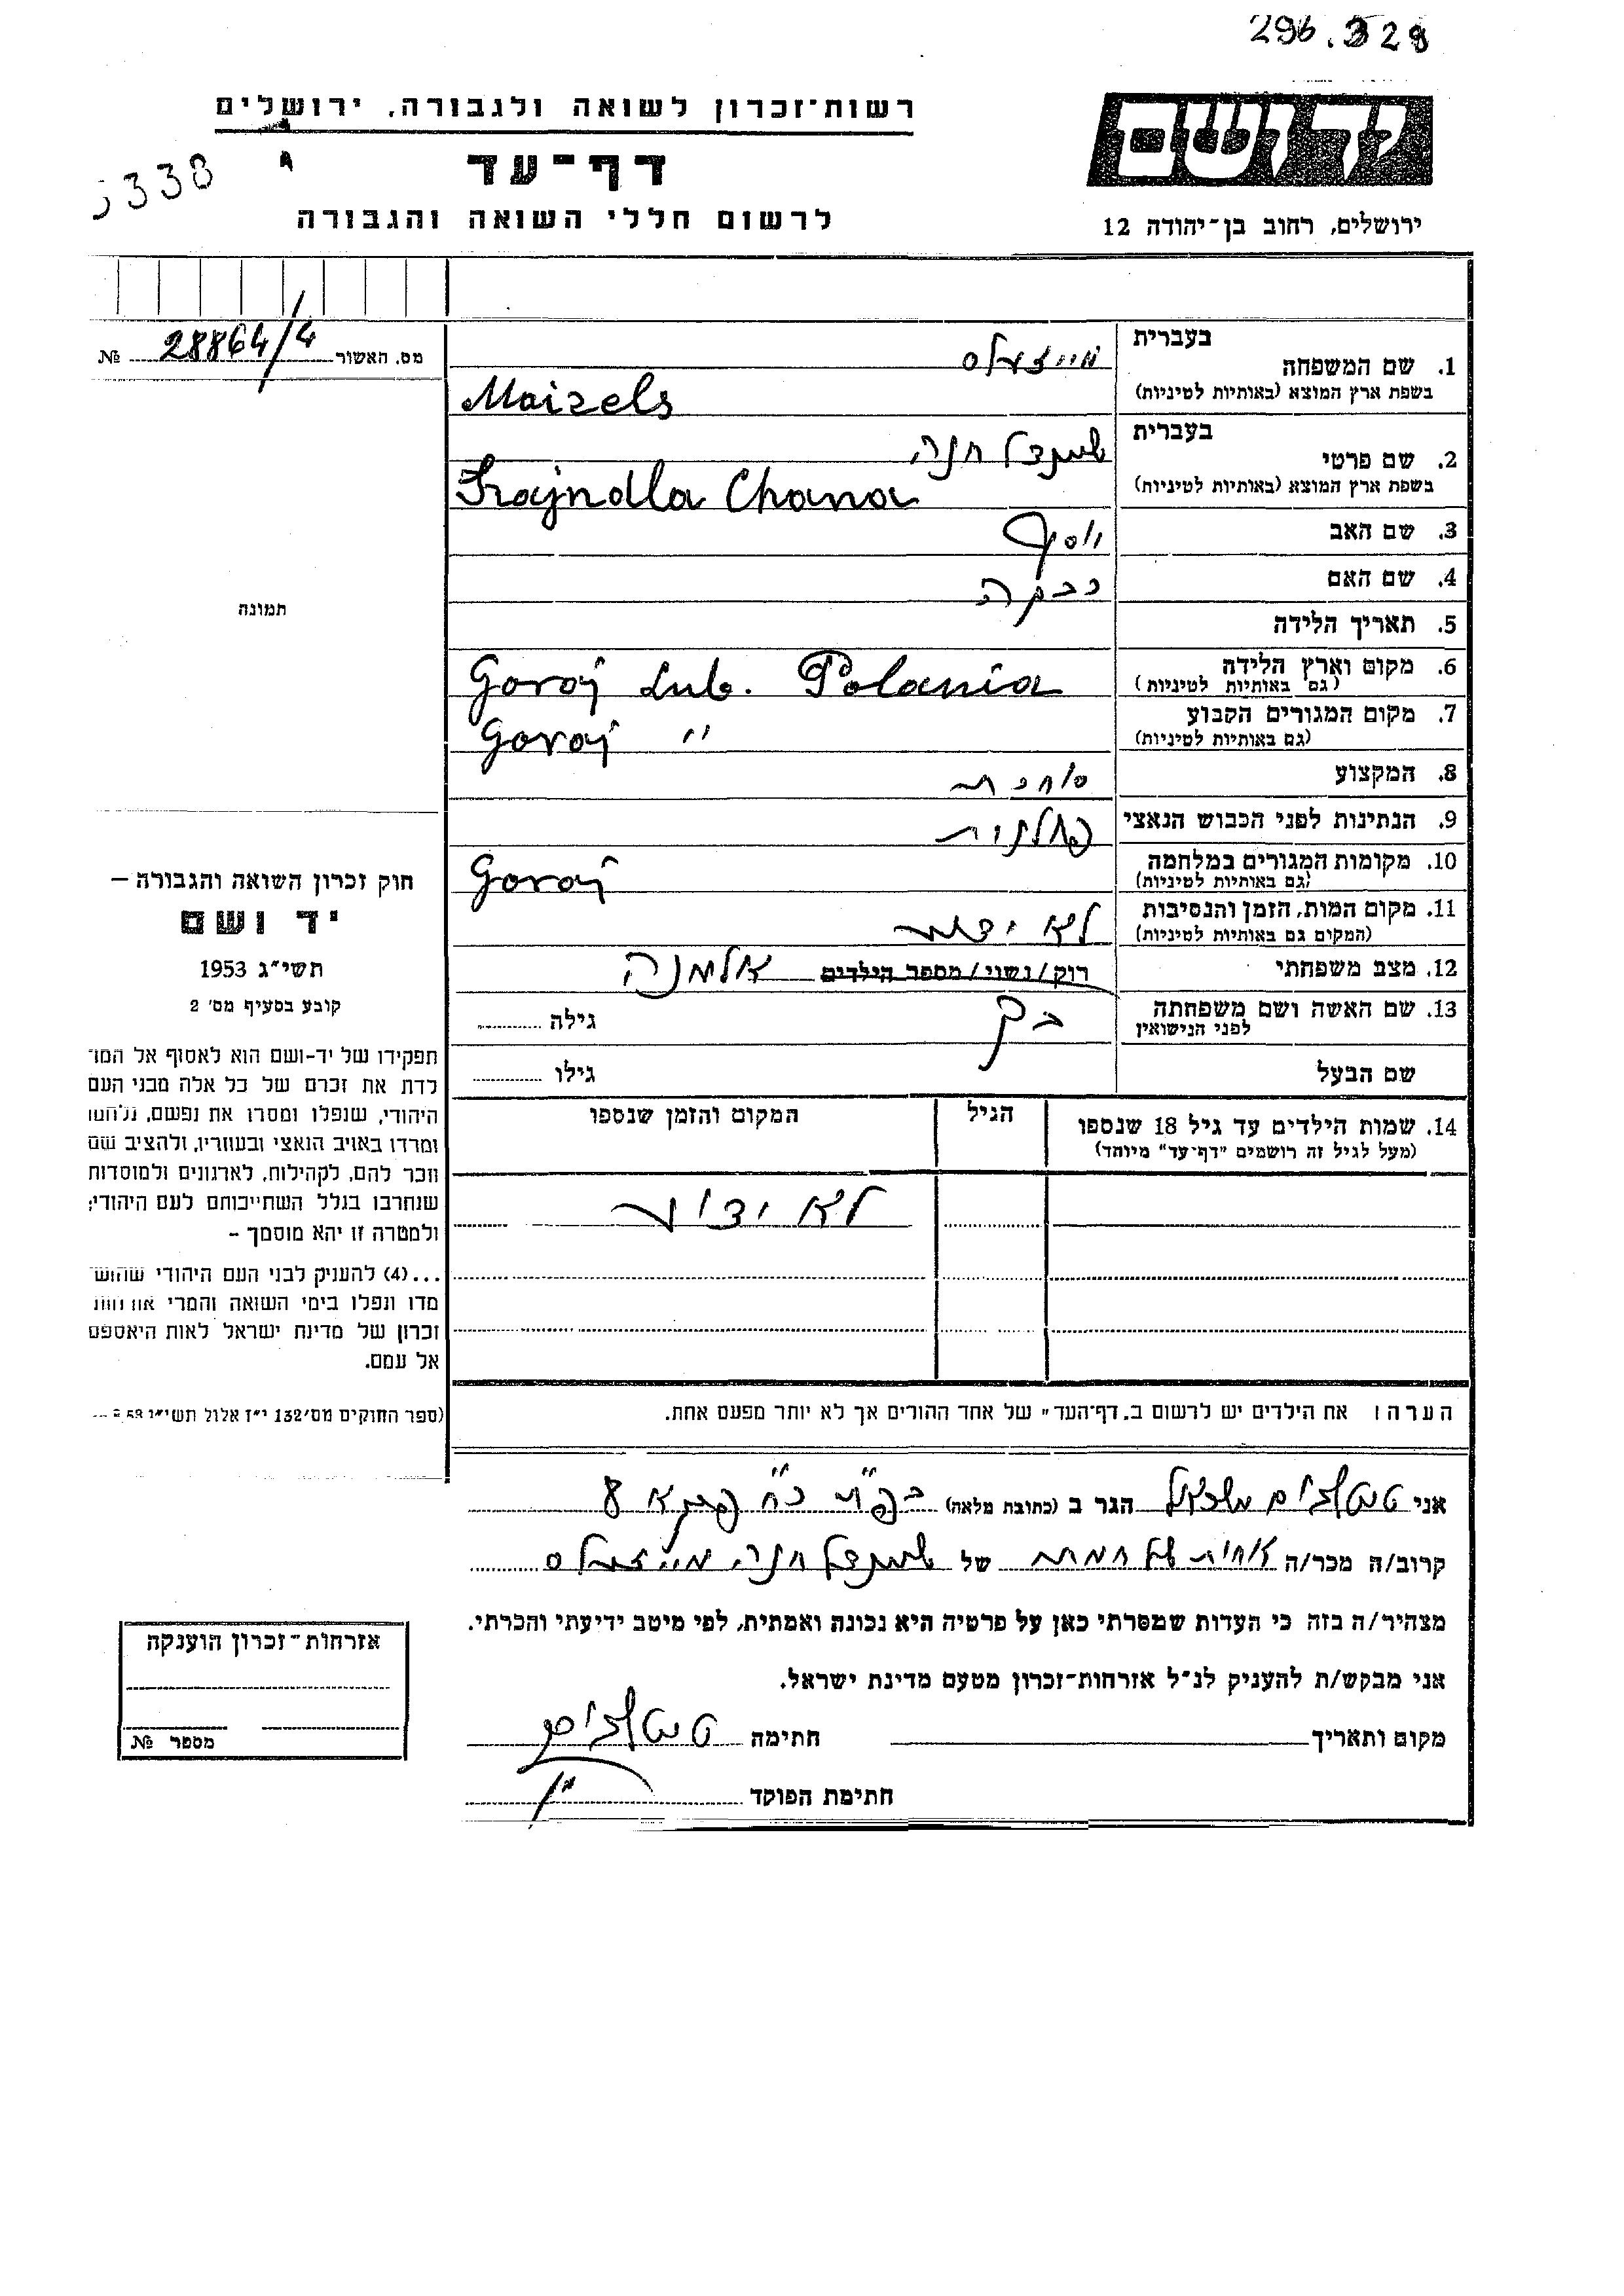 296.329
רשות-זכרון לשואה ולגבורה, ירושלים
יד ושם
דף-עד
5338
לרשום חללי השואה והגבורה
ירושלים, רחוב בן-יהודה 12
מס. האשור 28864/4 №
בעברית
1. שם המשפחה מייזעלס
בשפת ארץ המוצא (באותיות לטיניות) Maizels
בעברית
2. שם פרטי שיינדל חנה
בשפת ארץ המוצא (באותיות לטיניות) Szajndla Chana
3. שם האב יוסף
4. שם האם רבקה
5. תאריך הלידה
6. מקום וארץ הלידה Goraj Lub. Polania
(גם באותיות לטיניות)
7. מקום המגורים הקבוע Goraj "
(גם באותיות לטיניות)
8. המקצוע סוחרת
9. הנתינות לפני הכבוש הנאצי פולנית
10. מקומות המגורים במלחמה Goraj
(גם באותיות לטיניות)
11. מקום המות, הזמן והנסיבות לא ידוע
(המקום גם באותיות לטיניות)
12. מצב משפחתי רוק/נשוי/מספר הילדים אלמנה
13. שם האשה ושם משפחתה בק גילה
לפני הנישואין
שם הבעל גילו
14. שמות הילדים עד גיל 18 שנספו הגיל המקום והזמן שנספו
(מעל לגיל זה רושמים "דף-עד" מיוחד)
לא ידוע
הערה: את הילדים יש לרשום ב„דף-העד" של אחד ההורים אך לא יותר מפעם אחת.
תמונה
חוק זכרון השואה והגבורה –
יד ושם
תשי"ג 1953
קובע בסעיף מס' 2
תפקידו של יד-ושם הוא לאסוף אל המו־
לדת את זכרם של כל אלה מבני העם
היהודי, שנפלו ומסרו את נפשם, נלחמו
ומרדו באויב הנאצי ובעוזריו, ולהציב שם
וזכר להם, לקהילות, לארגונים ולמוסדות
שנחרבו בגלל השתייכותם לעם היהודי;
ולמטרה זו יהא מוסמך –
...(4) להעניק לבני העם היהודי שהוש־
מדו ונפלו בימי השואה והמרי אזרחות
זכרון של מדינת ישראל לאות היאספם
אל עמם.
(ספר החוקים מס' 132 י"ז אלול תשי"ג
אני הגר ב (כתובת מלאה)
קרוב/ה מכר/ה של שיינדל חנה מייזעלס
מצהיר/ה בזה כי העדות שמסרתי כאן על פרטיה היא נכונה ואמתית, לפי מיטב ידיעתי והכרתי.
אני מבקש/ת להעניק לנ"ל אזרחות-זכרון מטעם מדינת ישראל.
מקום ותאריך חתימה
חתימת הפוקד
אזרחות-זכרון הוענקה
מספר №